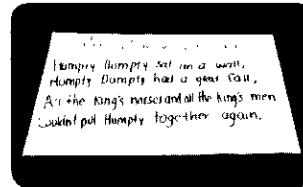 Humpty Dumpty sat on a wall,
Humpty Dumpty had a great fall,
All the king's horses and all the king's men
Couldn't put Humpty together again.